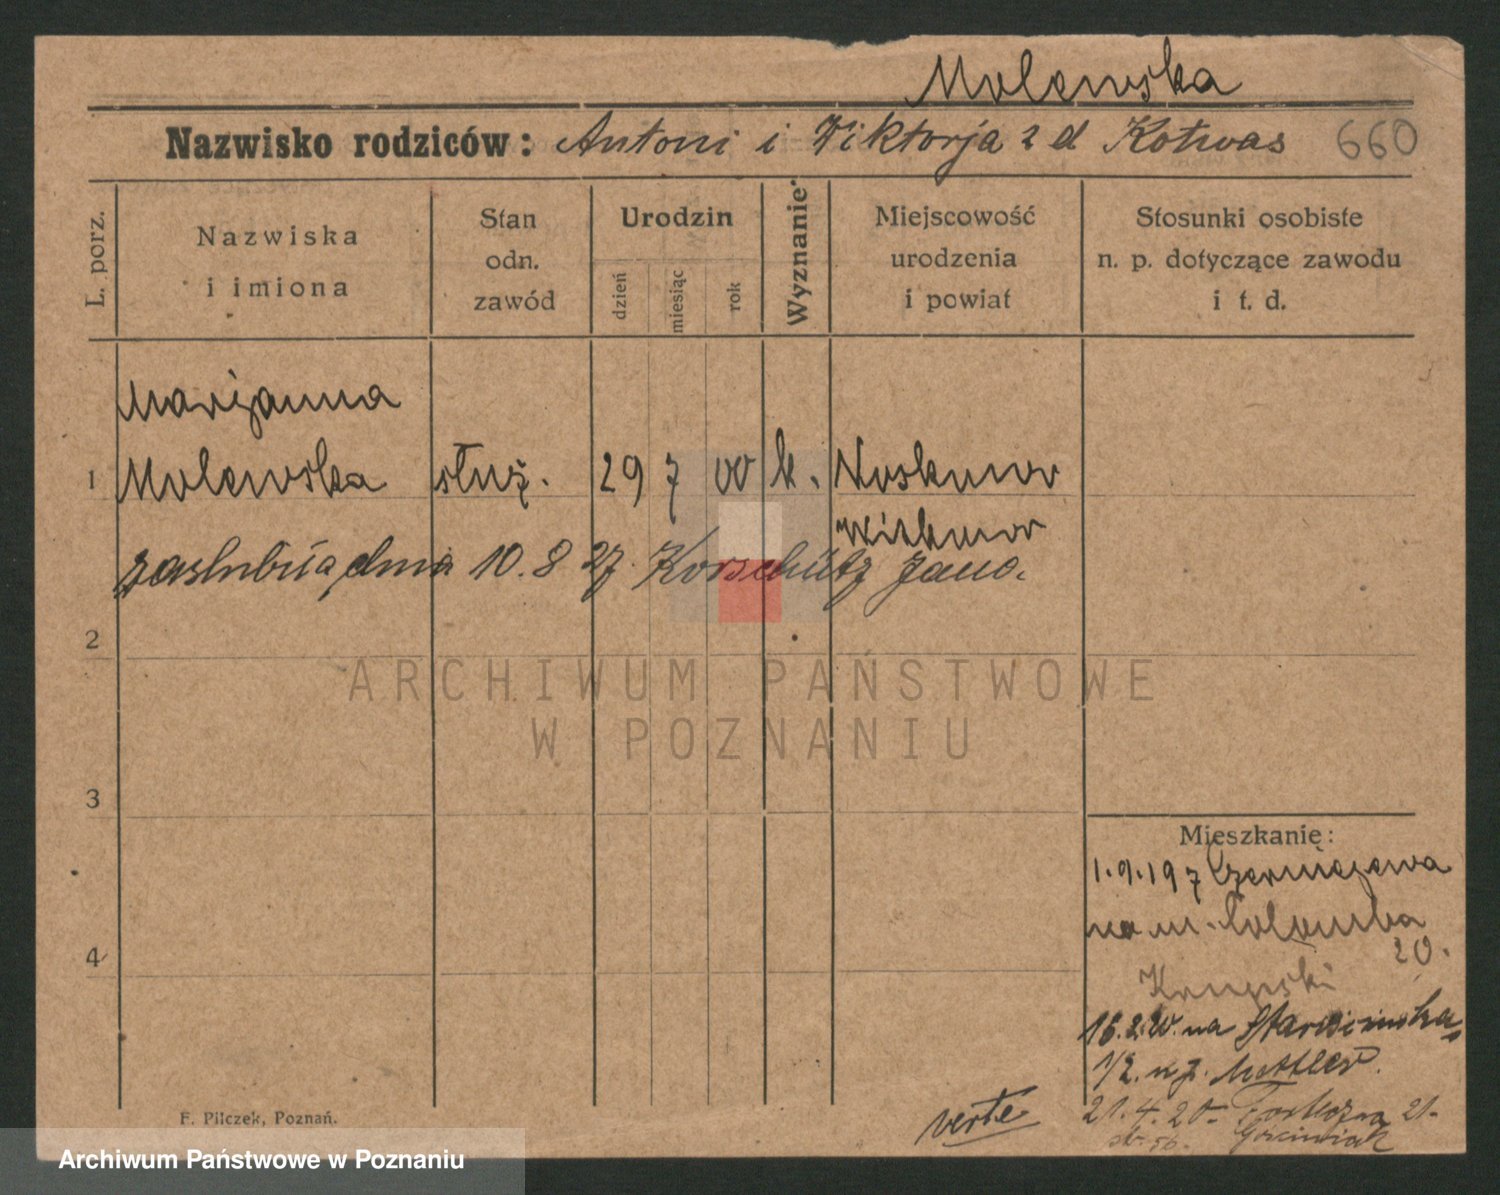 Molewska
Nazwisko rodziców: Antoni i Wiktorja z d Kotwas 660
L. porz.
Nazwiska i imiona
Stan odn. zawód
Urodzin
dzień
miesiąc
rok
Wyznanie
Miejscowość urodzenia i powiat
Stosunki osobiste n. p. dotyczące zawodu i t. d.
Marijanna
1 Molewska służ. 29 7 00 k.
Witkowo
zaślubiła dnia 10.8 27 Korschütz Jana.
2
3
4
Mieszkanie:
1.9.19 z
na
20.
Krupski
16.2.20. na
1/2.
21.4.20
21.
verte
F. Pilczek, Poznań.
ARCHIWUM PAŃSTWOWE
W POZNANIU
Archiwum Państwowe w Poznaniu